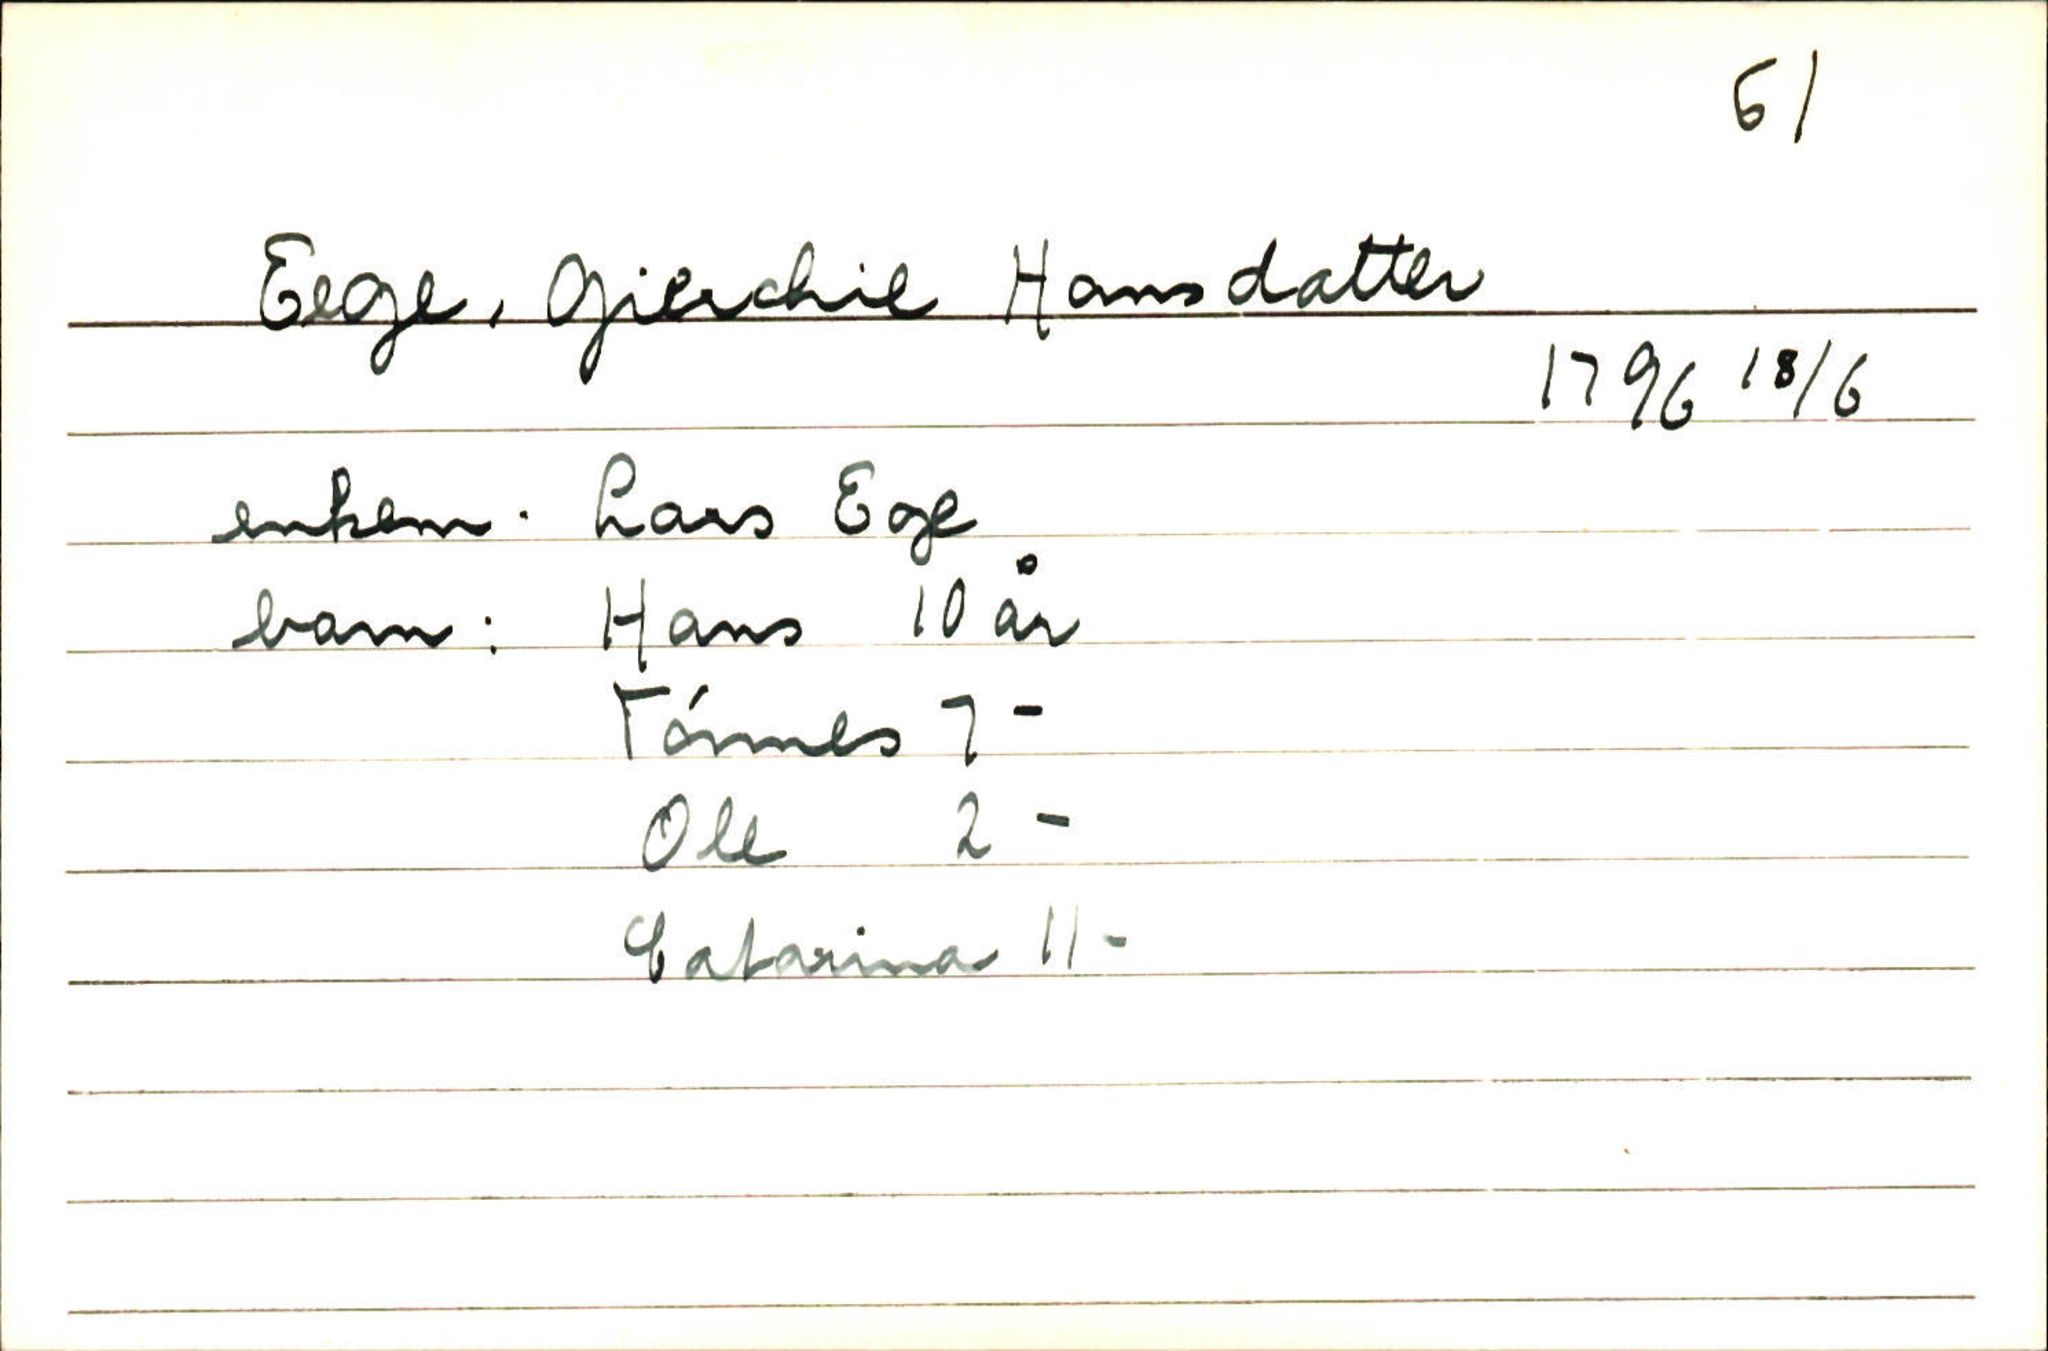 61
Eege, Gjerchie Hansdatter
1796 18/6
enkem. Lars Ege
barn: Hans 10 år
Tónnes 7 -
Ole 2 -
Catarina 11 -